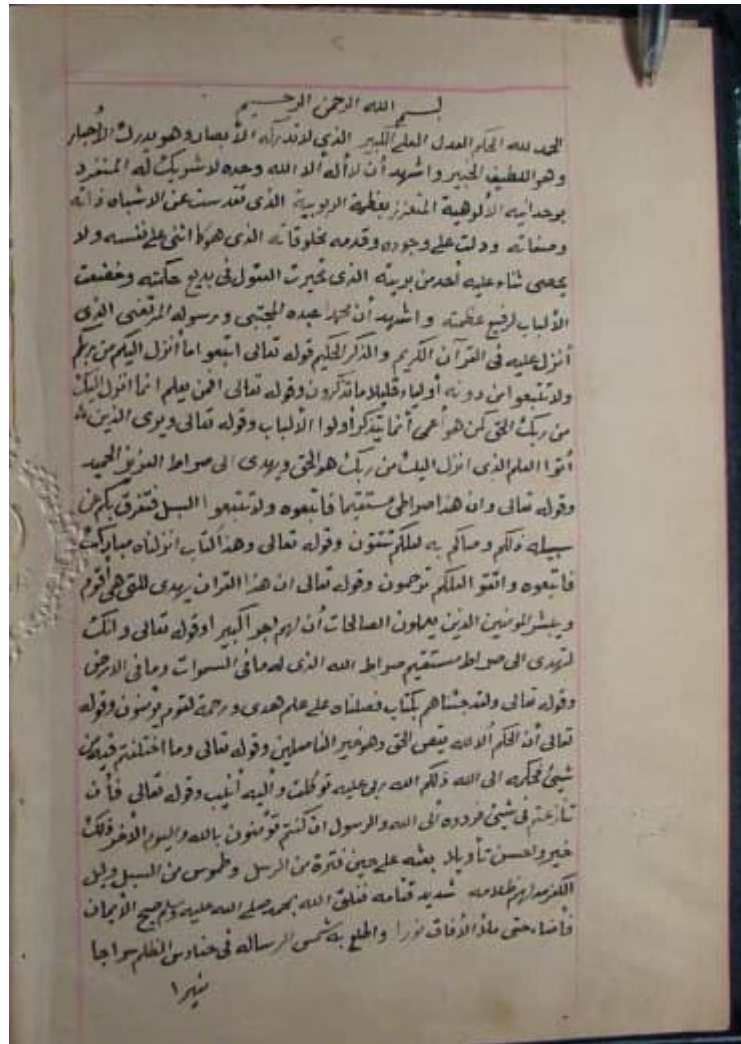 ٢
بسم الله الرحمن الرحيم
الحمد لله الحكم العدل العلي الكبير الذي لا تدركه الأبصار وهو يدرك الأبصار
وهو اللطيف الخبير واشهد أن لا أله ألا الله وحده لا شريك له المنفرد
بوحدانيه الألوهية المتعزز بعظمة الربوبية الذي تقدست عن الاشباه ذاته
وصفاته ودلت على وجوده وقدمه مخلوقاته الذي هو كما اثنى على نفسه ولا
يحصى ثناء عليه أحد من بريته الذي تحيرت العقول في بديع حكمته وخضعت
الألباب لرفيع عظمته واشهد أن محمدا عبده المجتبى ورسوله المرتضى الذي
أنزل عليه في القرآن الكريم والذكر الحكيم قوله تعالى اتبعوا ما أنزل اليكم من ربكم
ولا تتبعوا من دونه أولياء قليلا ما تذكرون وقوله تعالى افمن يعلم انما انزل اليك
من ربك الحق كمن هو أعمى أنما يتذكر أولوا الألباب وقوله تعالى ويرى الذين
أتوا العلم الذي انزل اليك من ربك هو الحق ويهدى الى صراط العزيز الحميد
وقوله تعالى وان هذا صراطي مستقيما فاتبعوه ولا تتبعوا السبل فتفرق بكم عن
سبيله ذلكم وصاكم به لعلكم تتقون وقوله تعالى وهذا كتاب انزلناه مبارك
فاتبعوه واتقوا لعلكم ترحمون وقوله تعالى ان هذا القران يهدى للتي هي أقوم
ويبشر المومنين الذين يعملون الصالحات أن لهم اجرا كبيرا وقوله تعالى وانك
لتهدى الى صراط مستقيم صراط الله الذي له ما في السموات وما في الارض
وقوله تعالى ولقد جئناهم بكتاب فصلناه على علم هدى ورحمة لقوم يؤمنون وقوله
تعالى أن الحكم ألا لله يقص الحق وهو خير الفاصلين وقوله تعالى وما اختلفتم فيه من
شيئ فحكمه الى الله ذلكم الله ربي عليه توكلت وأليه أنيب وقوله تعالى فأن
تنازعتم في شيئ فردوه ألى الله والرسول ان كنتم تؤمنون بالله واليوم الأخر ذلك
خير واحسن تأويلا بعثه على حين فترة من الرسل وطموس من السبل وليل
الكفر مدلهم ظلامه شديد قتامه ففلق الله بمحمد صلى الله عليه وسلم صبح الأيمان
فأضاء حتى ملأ الأفاق نورا واطلع به شمس الرساله في حنادس الظلم سراجا
نيرا